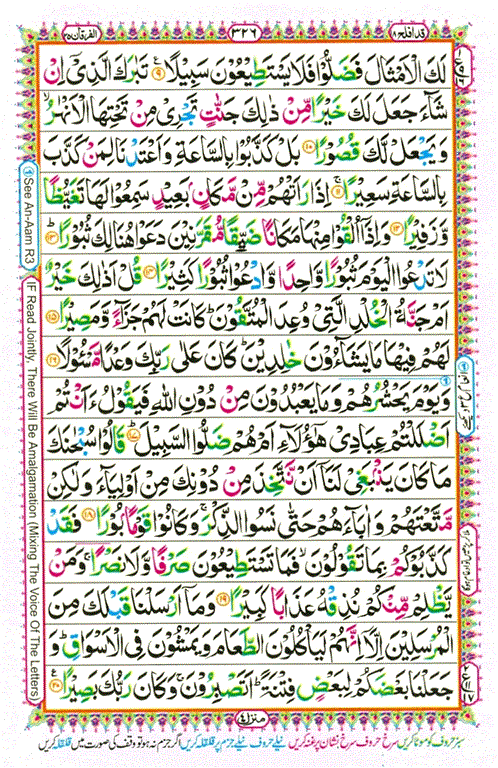 قد افلح ۱۸
۳۲۶
الفرقان ۲۵
لَكَ الْاَمْثَالَ فَضَلُّوْا فَلَا يَسْتَطِيْعُوْنَ سَبِيْلًا ۹ تَبٰرَكَ الَّذِىْۤ اِنْ
شَآءَ جَعَلَ لَكَ خَيْرًا مِّنْ ذٰلِكَ جَنّٰتٍ تَجْرِىْ مِنْ تَحْتِهَا الْاَنْهٰرُ ۙ
وَيَجْعَلْ لَّكَ قُصُوْرًا ۱۰ بَلْ كَذَّبُوْا بِالسَّاعَةِ وَاَعْتَدْنَا لِمَنْ كَذَّبَ
بِالسَّاعَةِ سَعِيْرًا ۱۱ اِذَا رَاَتْهُمْ مِّنْ مَّكَانٍۭ بَعِيْدٍ سَمِعُوْا لَهَا تَغَيُّظًا
وَّزَفِيْرًا ۱۲ وَاِذَاۤ اُلْقُوْا مِنْهَا مَكَانًا ضَيِّقًا مُّقَرَّنِيْنَ دَعَوْا هُنَالِكَ ثُبُوْرًا ۱۳
لَا تَدْعُوا الْيَوْمَ ثُبُوْرًا وَّاحِدًا وَّادْعُوْا ثُبُوْرًا كَثِيْرًا ۱۴ قُلْ اَذٰلِكَ خَيْرٌ
اَمْ جَنَّةُ الْخُلْدِ الَّتِىْ وُعِدَ الْمُتَّقُوْنَ ؕ كَانَتْ لَهُمْ جَزَآءً وَّمَصِيْرًا ۱۵
لَهُمْ فِيْهَا مَا يَشَآءُوْنَ خٰلِدِيْنَ ؕ كَانَ عَلٰى رَبِّكَ وَعْدًا مَّسْئُوْلًا ۱۶
وَيَوْمَ يَحْشُرُهُمْ وَمَا يَعْبُدُوْنَ مِنْ دُوْنِ اللّٰهِ فَيَقُوْلُ ءَاَنْتُمْ
اَضْلَلْتُمْ عِبَادِىْ هٰٓؤُلَآءِ اَمْ هُمْ ضَلُّوا السَّبِيْلَ ۱۷ قَالُوْا سُبْحٰنَكَ
مَا كَانَ يَنْۢبَغِىْ لَنَاۤ اَنْ نَّتَّخِذَ مِنْ دُوْنِكَ مِنْ اَوْلِيَآءَ وَلٰكِنْ
مَّتَّعْتَهُمْ وَاٰبَآءَهُمْ حَتّٰى نَسُوا الذِّكْرَ ۚ وَكَانُوْا قَوْمًۢا بُوْرًا ۱۸ فَقَدْ
كَذَّبُوْكُمْ بِمَا تَقُوْلُوْنَ ۙ فَمَا تَسْتَطِيْعُوْنَ صَرْفًا وَّلَا نَصْرًا ۚ وَمَنْ
يَّظْلِمْ مِّنْكُمْ نُذِقْهُ عَذَابًا كَبِيْرًا ۱۹ وَمَاۤ اَرْسَلْنَا قَبْلَكَ مِنَ
الْمُرْسَلِيْنَ اِلَّاۤ اِنَّهُمْ لَيَاْكُلُوْنَ الطَّعَامَ وَيَمْشُوْنَ فِى الْاَسْوَاقِ ؕ وَ
جَعَلْنَا بَعْضَكُمْ لِبَعْضٍ فِتْنَةً ؕ اَتَصْبِرُوْنَ ۚ وَكَانَ رَبُّكَ بَصِيْرًا ۲۰
منزل ۴
See An-Aam R3
(IF Read Jointly, There Will Be Amalgamation (Mixing The Voice Of The Letters)
سبز حروف کو موٹا کریں سرخ حروف سرخ نشان پر غنہ کریں نیلے حروف نیلے جزم پر قلقلہ کریں اگر جزم نہ ہو تو وقف کی صورت میں قلقلہ کریں